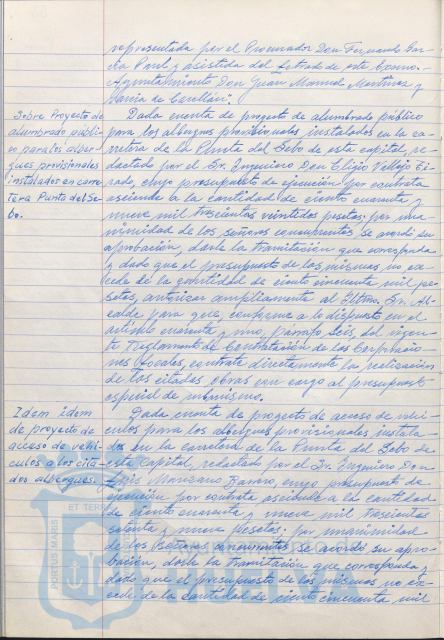 representada por el Procurador Don Fernando Gar-
cía Paul y asistida del Letrado de este Excmo.-
Ayuntamiento Don Juan Manuel Martínez y
García de
Sobre Proyecto de
alumbrado públi-
co para los alber-
gues provisionales
instalados en carre-
tera Punta del Se-
bo.
Dada cuenta de proyecto de alumbrado público
para los albergues provisionales instalados en la ca-
rretera de la Punta del Sebo de esta capital, re-
dactado por el Sr. Ingeniero Don Eligio Vallejo
cuyo presupuesto de ejecución por contrata
asciende a la cantidad de ciento cuarenta y
nueve mil trescientas veintidós pesetas: por una-
nimidad de los señores concurrentes, se acordó su
aprobación, darle la tramitación que corresponda
y dado que el presupuesto de las mismas no ex-
cede de la cantidad de ciento cincuenta mil pe-
setas, autorizar ampliamente al Iltmo. Sr. Al-
calde para que, conforme a lo dispuesto en el
artículo cuarenta y uno, párrafo seis del vigen-
te Reglamento de Contratación de las Corporacio-
nes Locales, contrate directamente la realización
de las citadas obras con cargo al presupuesto
especial de urbanismo.
Idem idem
de proyecto de
acceso de vehí-
culos a los cita-
dos albergues.
Dada cuenta de proyecto de acceso de vehí-
culos para los albergues provisionales instala-
dos en la carretera de la Punta del Sebo de
esta capital, redactado por el Sr. Ingeniero Don
Luis Manzano cuyo presupuesto de
ejecución por contrata asciende a la cantidad
de ciento cuarenta y nueve mil trescientas
y nueve pesetas: por unanimidad
de los señores concurrentes se acordó su apro-
bación, darle la tramitación que corresponda y
dado que el presupuesto de las mismas no ex-
cede de la cantidad de ciento cincuenta mil
PORTUS MARIS
ET TERR